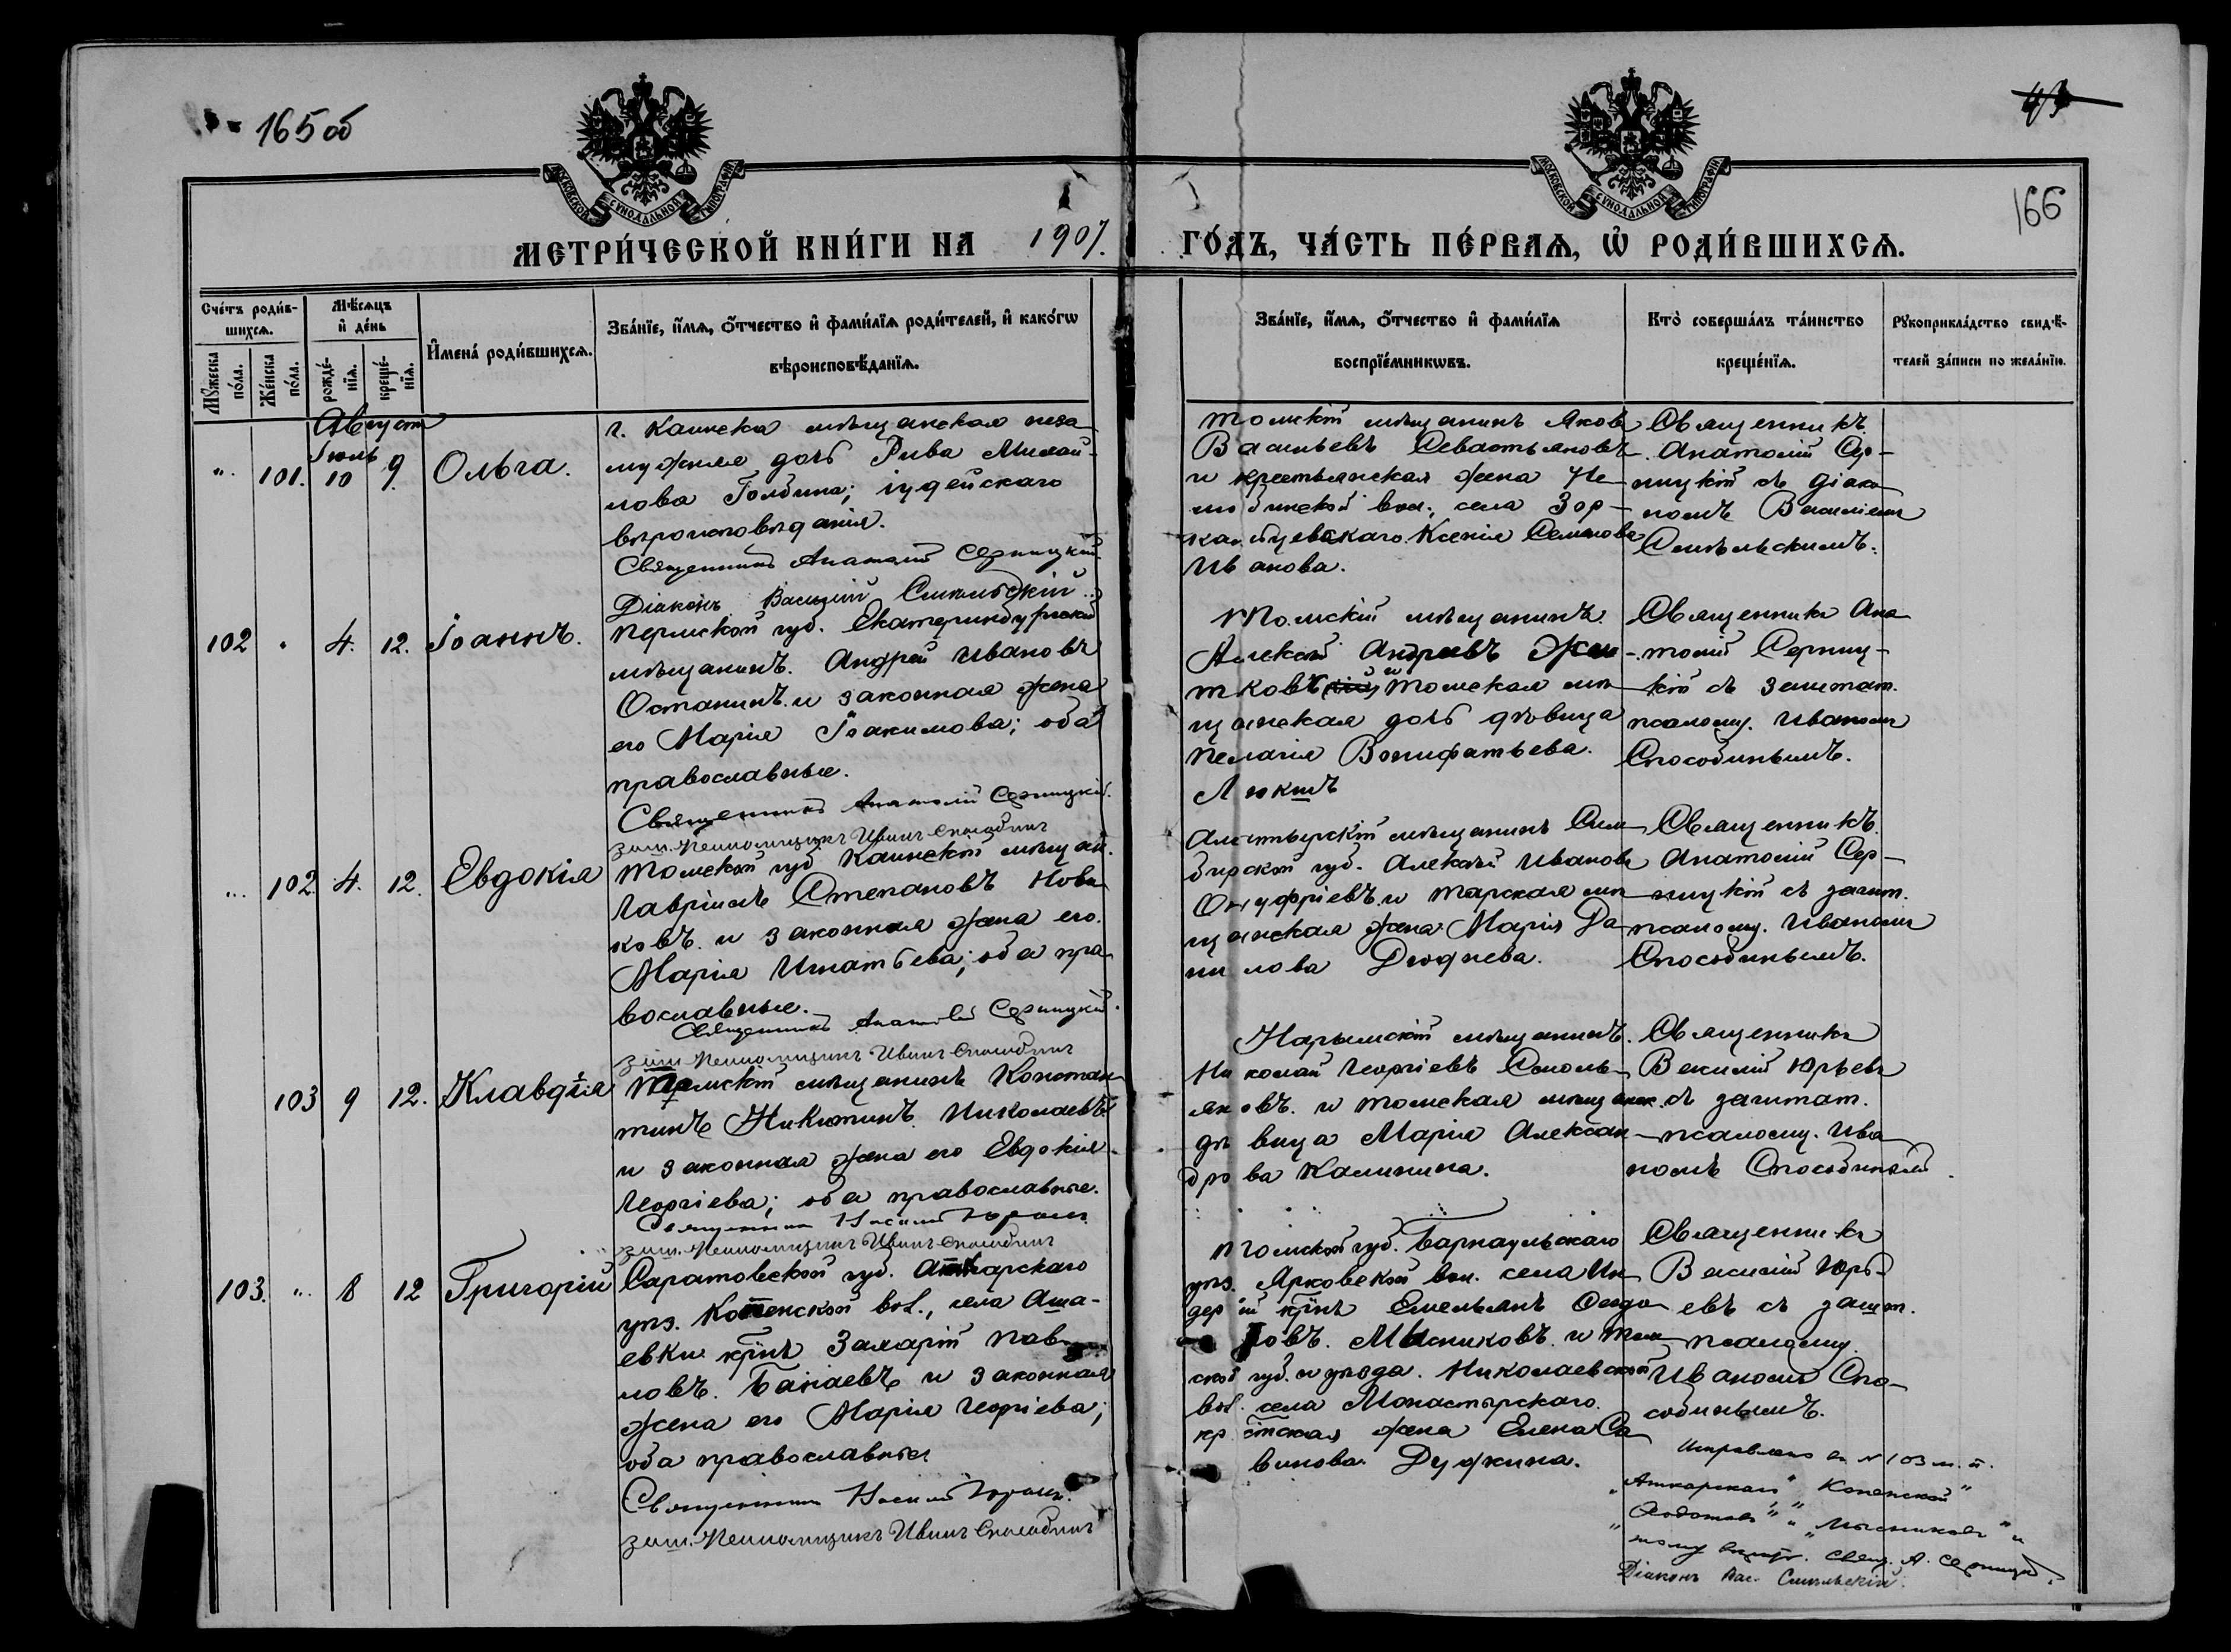 165 об
43
166
МОСКОВСКОЙ СѴНОДАЛЬНОЙ ТИПОГРАФІИ
МОСКОВСКОЙ СѴНОДАЛЬНОЙ ТИПОГРАФІИ
МЕТРИ́ЧЕСКОЙ КНИ́ГИ НА 1907. ГО́ДЪ, ЧА́СТЬ ПЕ́РВАѦ, Ѡ҆ РОДИ́ВШИХСѦ.
Сче́тъ роди́в-
шихсѧ.
Мꙋ́жеска
по́ла.
Же́нска
по́ла.
Мѣ́сѧцъ
и҆ де́нь
рожде́-
нїѧ.
креще́-
нїѧ.
И҆мена̀ роди́вшихсѧ.
Зва́нїе, и҆́мѧ, ѻ҆́тчество и҆ фами́лїѧ роди́телей, и҆ како́гѡ
вѣроисповѣ́данїѧ.
Зва́нїе, и҆́мѧ, ѻ҆́тчество и҆ фами́лїѧ
воспрїе́мникѡвъ.
Кто̀ соверша́лъ та́инство
креще́нїѧ.
Рꙋкоприкла́дство свидѣ́-
телей за́писи по жела́нїю.
Августъ
Іюль
" 101. 10 9. Ольга.
г. Каинска мѣщанская неза
мужняя дочь Рива Михай-
лова Голдина; іудейскаго
вѣроисповѣданія.
Священникъ Анатолій Серницкій
Діаконъ Василій Смиѣльскій
Томскій мѣщанинъ Яковъ
Васильевъ Севастьяновъ
и крестьянская жена
вол., села Зор-
каго Ксенія Семенова
Иванова.
Священникъ
Анатолій Сер-
ницкій съ діако
номъ Василіемъ
102 " 4. 12. Іоаннъ.
Пермской губ. Екатеринбургскій
мѣщанинъ Андрей Ивановъ
Останинъ и законная жена
его Марія Іоакимова; оба
православные.
Священникъ Анатолій Серницкій.
заш. Псаломщикъ Иванъ Способинъ
Томскій мѣщанинъ
Алексѣй Андреевъ Жи-
тковъ и Томская мѣ
щанская дочь дѣвица
Пелагія Вонифатьева.
Священникъ Ана
толій Серниц-
кій съ заштат.
псаломщ. Иваномъ
Способинымъ.
" 102 4. 12. Евдокія
Томской губ. Каинскій мѣщан.
Гавріилъ Степановъ Нови
ковъ и законная жена его
Марія Игнатьева; оба пра
вославные.
Священникъ Анатолій Серницкій.
заш. Псаломщикъ Иванъ Способинъ
Алатырскій мѣщанинъ Сим
бирской губ. Алексѣй Ивановъ
Онуфріевъ и Тарская мѣ
щанская жена Марія Да
нилова Дюднева.
Священникъ
Анатолій Сер-
ницкій съ зашт.
псаломщ. Иваномъ
Способинымъ.
103 9 12. Клавдія
Томскій мѣщанинъ Констан
тинъ Никитинъ Николаевъ
и законная жена его Евдокія
Георгіева; оба православные.
Священникъ Василій Юрьевъ
заш. Псаломщикъ Иванъ Способинъ
Нарымскій мѣщанинъ
Николай Георгіевъ Соколь-
яковъ и Томская мѣщанск.
дѣвица Марія Алексан
дрова Калинина.
Священникъ
Василій Юрьевъ
съ заштат.
псаломщ. Ива
номъ Способинымъ
103. " 8 12 Григорій
Саратовской губ. Аткарскаго
уѣз. Копенской вол., села
евки крнъ Захарій Пав
ловъ Баналевъ и законная
жена его Марія Георгіева;
оба православные
Священникъ Василій Юрьевъ.
заш. Псаломщикъ Иванъ Способинъ
Томской губ. Барнаульскаго
уѣз. Ярковской вол. села Ин
дер крнъ Емельянъ Ѳедо
товъ Мысниковъ и Том
ской губ. и уѣзда Николаевской
вол. села Монастырскаго
кр стская жена Елена Са
винова Дудкина.
Священникъ
Василій Юрь-
евъ съ зашт.
псаломщ.
Иваномъ Спо-
собинымъ.
Исправлено въ № 103 м. п.
„Аткарскаго" „Копенской"
„Ѳедотовъ" „Мысниковъ" и
вѣрить. Свящ. А. Серницкій.
Діаконъ Вас.